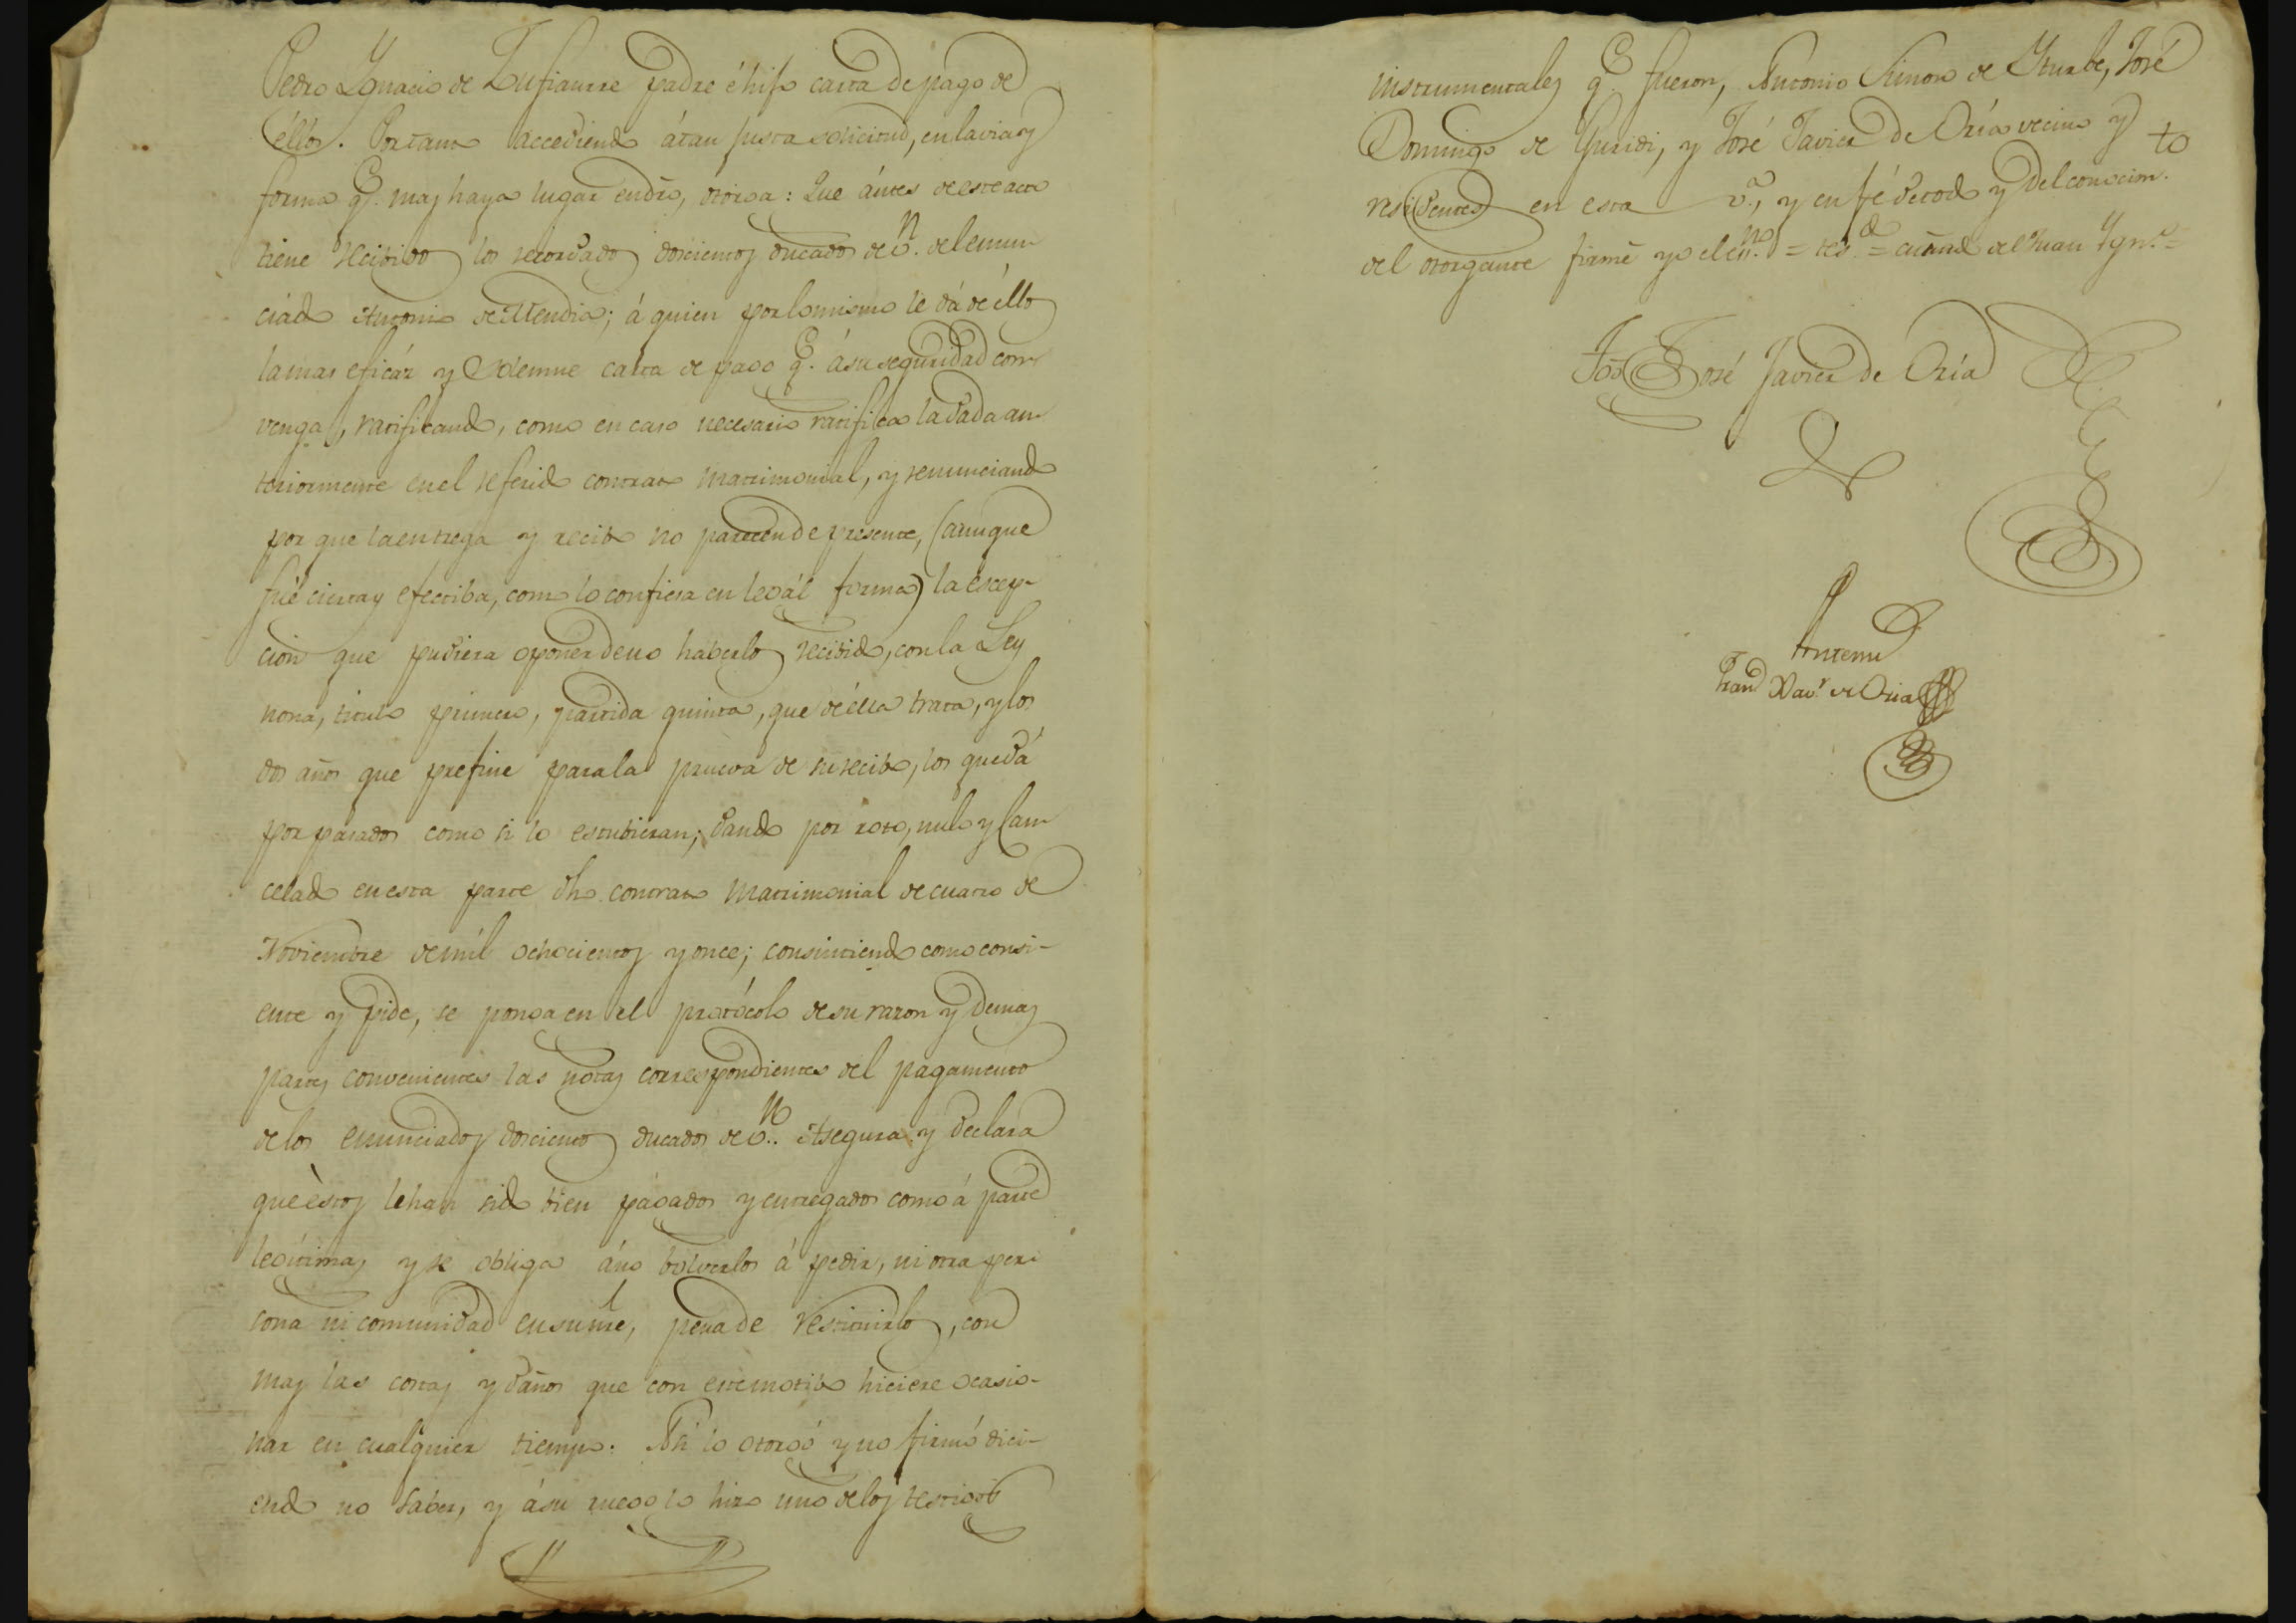 Pedro Ygnacio de Lufiaurre padre é hijo carta de pago de
éllos. Portanto accediendo átan justa solicitud, en la via y
forma q.e mas haya lugar endro, otorga: Que ántes de este acto
tiene recibido los recordados doscientos ducados de v.n del enun-
ciado Antonio de Mendia; á quien por lo mismo le dá de éllos
la mas eficáz y solemne carta de pago q.e ásu seguridad con-
venga, ratificando, como en caso necesario ratifica la dada an-
teriormente en el referido contrato matrimonial, y renunciando
por que la entrega y recibo no parecen de presente, (aunque
fué cierta y efectiba, como lo confiesa en legál forma) la escep-
cion que pudiera oponer de no haberlos recibido, con la Ley
nona, titulo primero, partida quinta, que de élla trata, y los
dos años que prefine para la prueva de su recibo, los que dá
por pasados como si lo estubieran; dando por roto, nulo y can-
celado en esta parte dho contrato matrimonial de cuatro de
Noviembre de mil ochocientos y once; consintiendo como consi-
ente y pide, se ponga en el protócolo de su razon y demas
partes convenientes las notas correspondientes del pagamento
de los enunciados doscientos ducados de v.n. Asegura y declara
que éstos le han sido bien págados y entregados como á parte
legítima, y se obliga áno bolverlos á pedir, ni otra per-
sona ni comunidad en su nre, pena de restituirlos, con
mas las costas y daños que con este motibo hiciere ocasio-
nar en cualquier tiempo: Asi lo otorgó y no firmó dici-
endo no saber, y ásu ruego lo hizo uno de los testigos
instrumentales q.e fueron, Antonio Simon de Yturbe, José
Domingo de Guridi, y José Javier de Oria vecino y
residentes en esta v.a, y en fé de todo y del conocim.to
del otorgante firmé yo el es.no = tes.do = cuñado de Juan Ygn.o =
Tgo José Javier de Oria
Antemi
Fran.co Xav.r de Oria